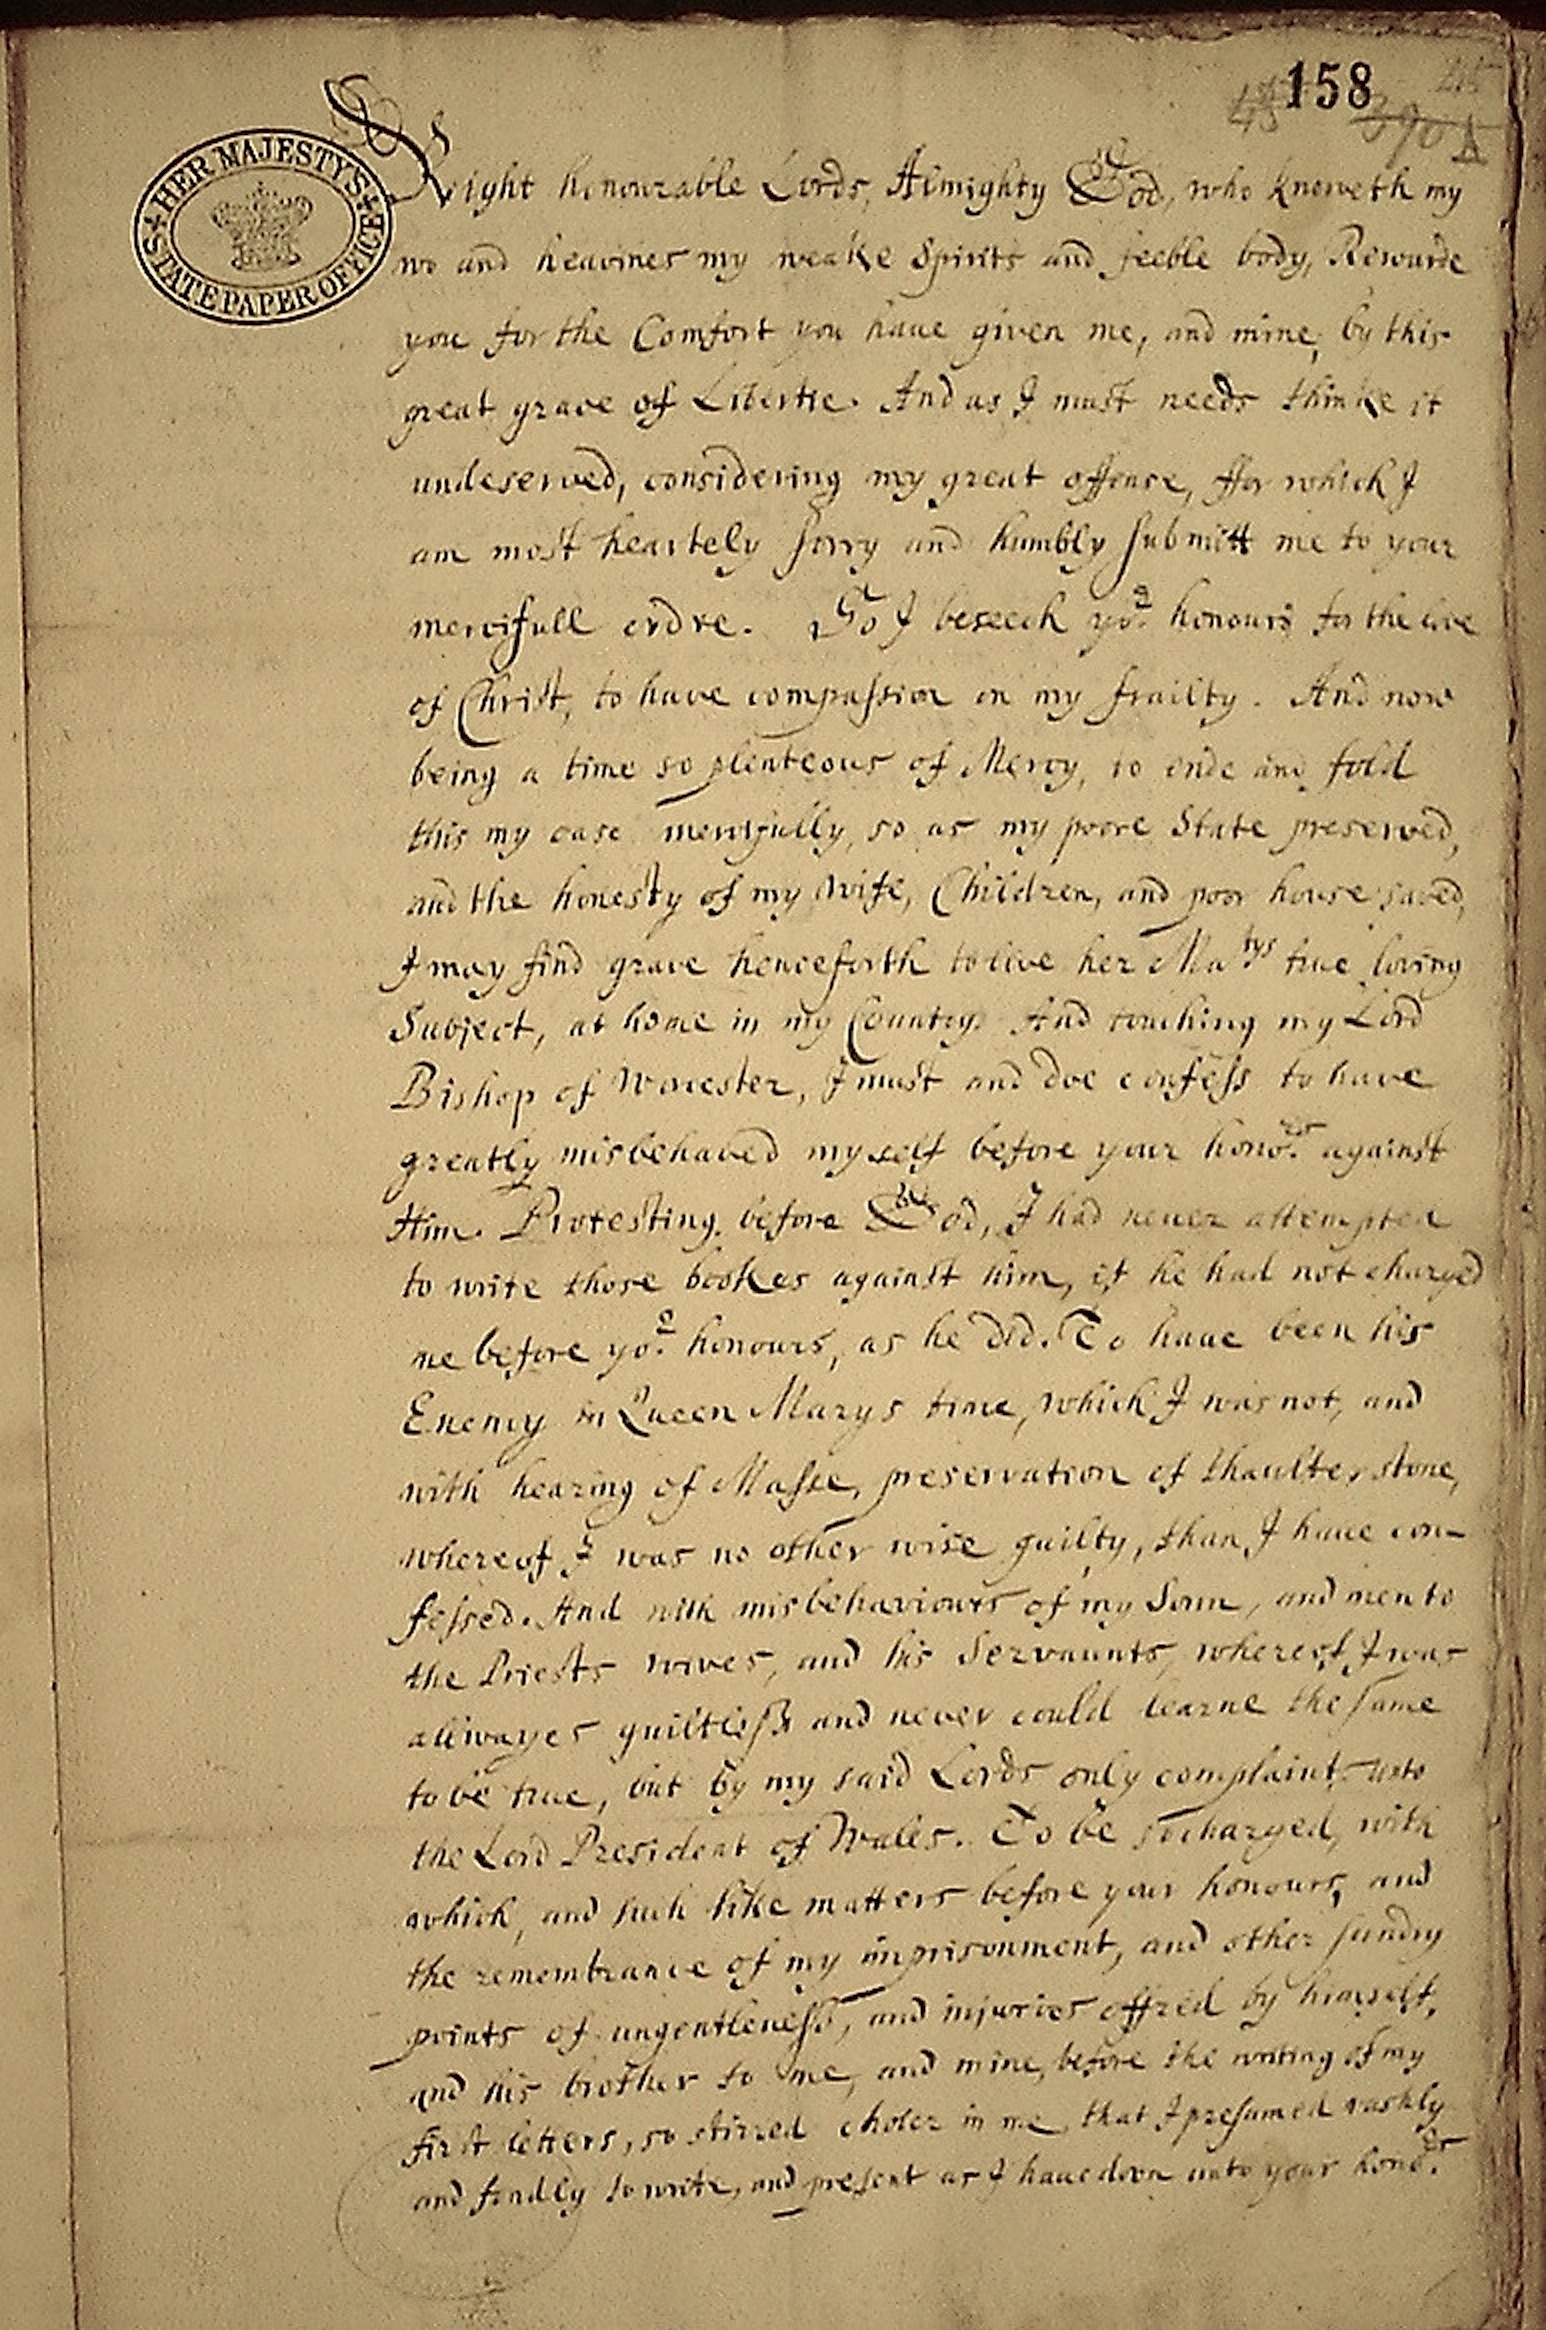 158
HER MAJESTY'S STATE PAPER OFFICE
Right honourable Lords, Almighty God, who knoweth my
wo and heavines my weake Spirits and feeble body, Rewarde
you for the Comfort you haue given me, and mine, by this
great grace of Libertie. And as I must needs thinke it
undeserved, considering my great offense, ffor which I
am most heartely sorry and humbly submitt me to your
mercifull ordre. So I beseech yor. honours for the love
of Christ, to have compassion on my frailty. And now
being a time so plenteous of Mercy, to ende and fold
this my case mercifully, so as my poore State preserved,
and the honesty of my wife, Children, and poor house saved,
I may find grace henceforth to live her Matys true loving
Subject, at home in my Country. And touching my Lord
Bishop of Worcester, I must and doe confess to have
greatly misbehaved myself before your honors. against
Him. Protesting before God, I had never attempted
to write those bookes against him, if he had not charged
me before yor. honours, as he did. To haue been his
Enemy in Queen Marys time, which I was not, and
with hearing of Masse, preservation of thaulter stone,
whereof I was no other wise guilty, than I haue con-
fessed. And with misbehaviours of my Sonn, and men to
the Priests wives, and his Servaunts, whereof I was
allwayes guiltless and never could learne the same
to be true, but by my said Lords only complaint unto
the Lord President of Wales. To be so charged, with
which, and such like matters before your honours, and
the remembrance of my imprisonment, and other sundry
points of ungentleness, and injuries offred by himself,
and his brother to me, and mine, before the writing of my
first letters, so stirred choler in me that I presumed rashly
and fondly to write, and present as I haue doon unto your honors.